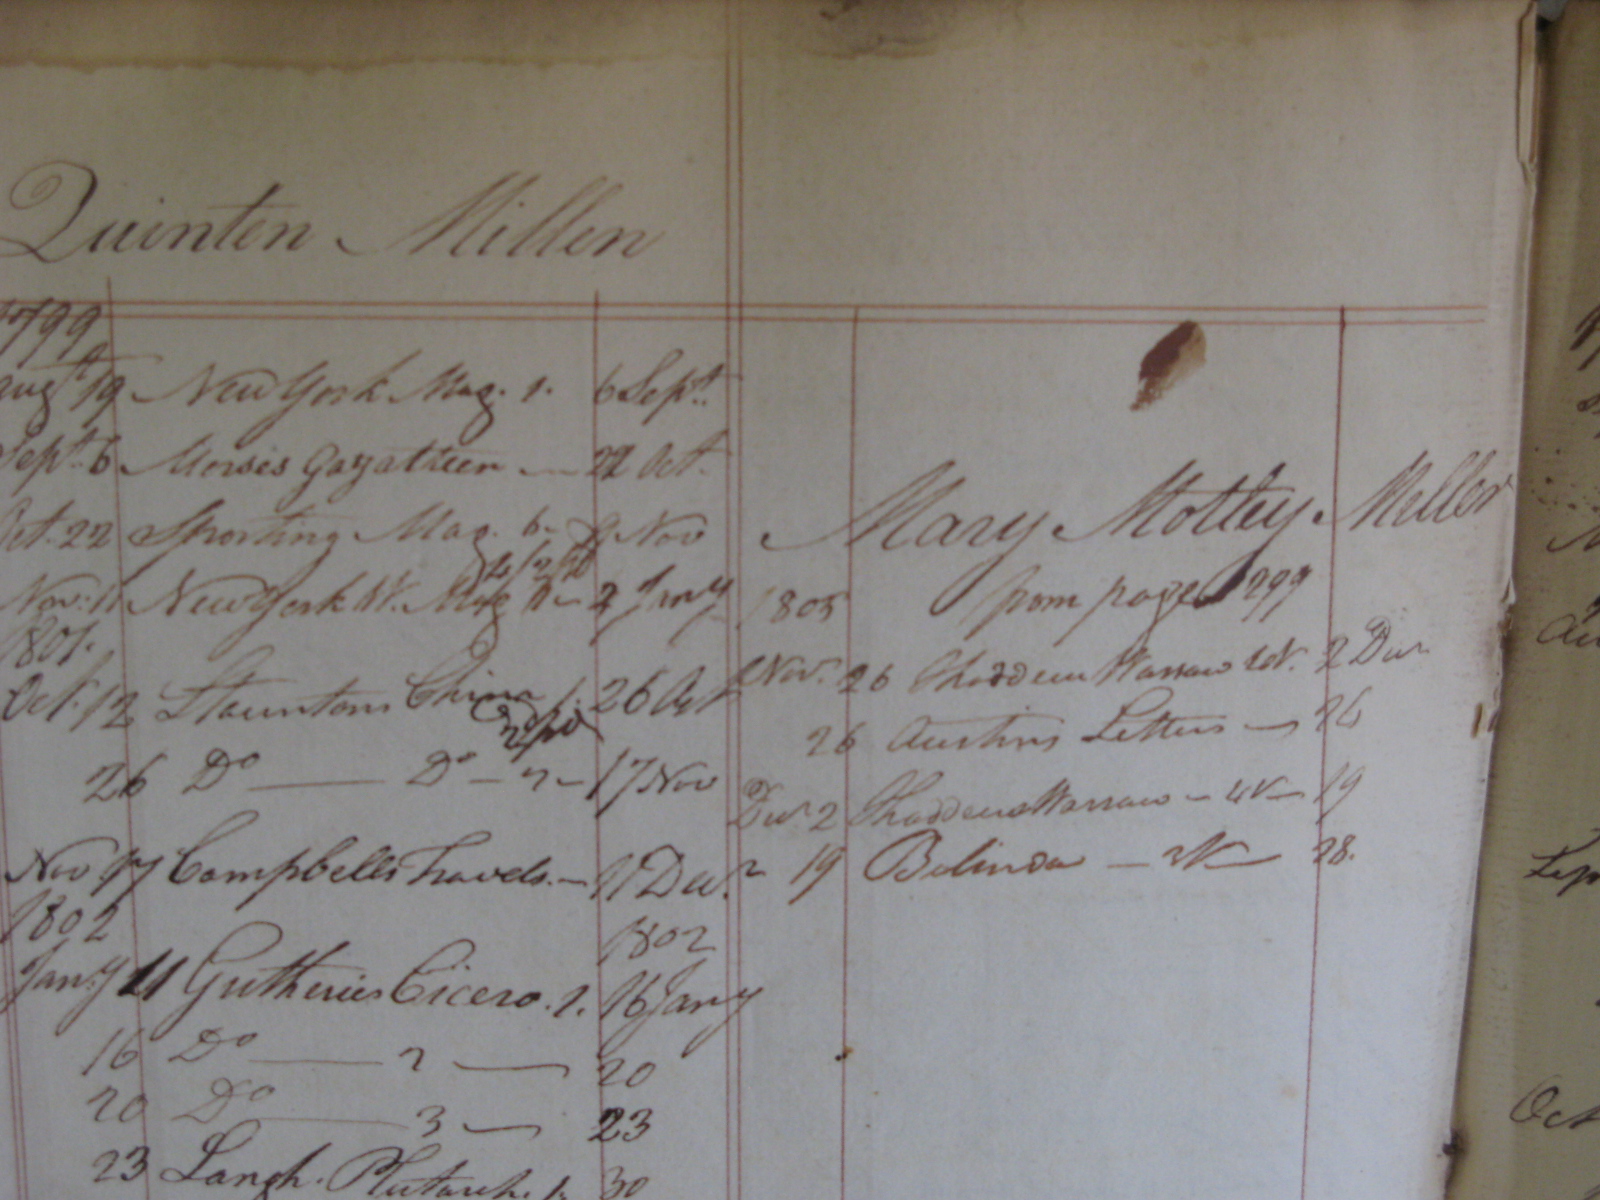 Quinten Millen
1799
Augt 19 New York Mag. 1. 6 Sept.
Sept. 6 Morses Gazatteer 22 Oct.
Oct. 22 Sporting Mag. 6 9 Nov
Nov. 11 New York W. Mag 2 Jany
1801.
Oct. 12 Stauntons China 1. 26 Oct
26 Do Do 2 17 Nov
Nov 17 Campbells Travels 11 Decr
1802 1802
Jany 11 Gutheries Cicero. 1. 16 Jany
16 Do 2 20
20 Do 3 23
23 Langh. Plutarch. 1. 30
Mary Motley Miller
1805 from page 299
Novr. 26 Thaddeus Warsaw 2 Decr
26 Austins Letters 26
Decr 2 Thaddeus Warsaw 4V 19
19 Belinda 2V 28.